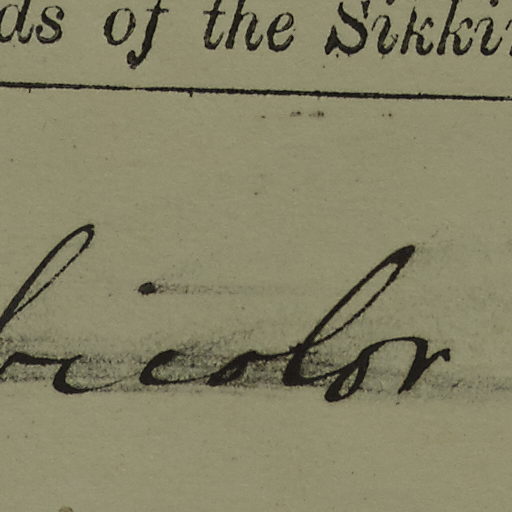 ds of the Sikki
bicolor